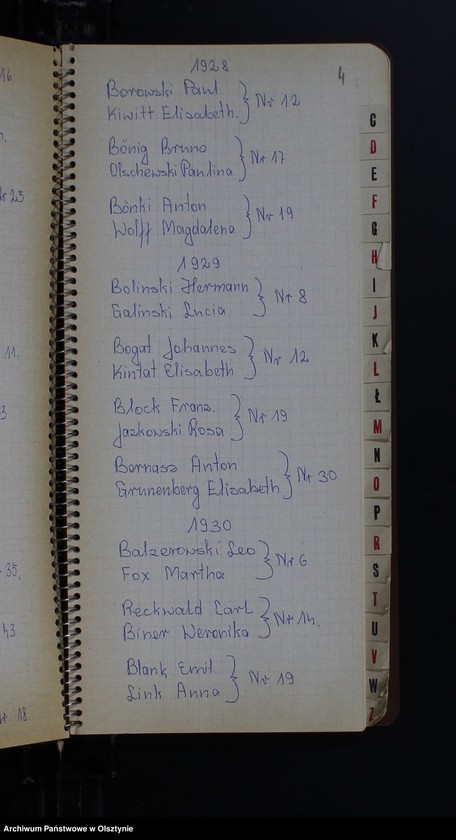 16
4
1928
Borowski Paul
Kiwitt Elisabeth. } Nr 12
Bönig Bruno
Olschewski Paulina } Nr 17
Bönki Anton
Wolff Magdalena } Nr 19
1929
Bolinski Hermann
Galinski Lucia } Nr 8
Bogat Johannes
Kintat Elisabeth } Nr 12
Block Franz.
Jazkowski Rosa } Nr 19
Bornass Anton
Grunenberg Elisabeth } Nr 30
1930
Balzerowski Leo
Fox Martha } Nr 6
Reckwald Carl
Biner Weronika } Nr 14.
Blank Emil
Link Anna } Nr 19
Nr 25
11.
3
35,
43
18
C
D
E
F
G
H
I
J
K
L
Ł
M
N
O
P
R
S
T
U
V
W
Z
Archiwum Państwowe w Olsztynie